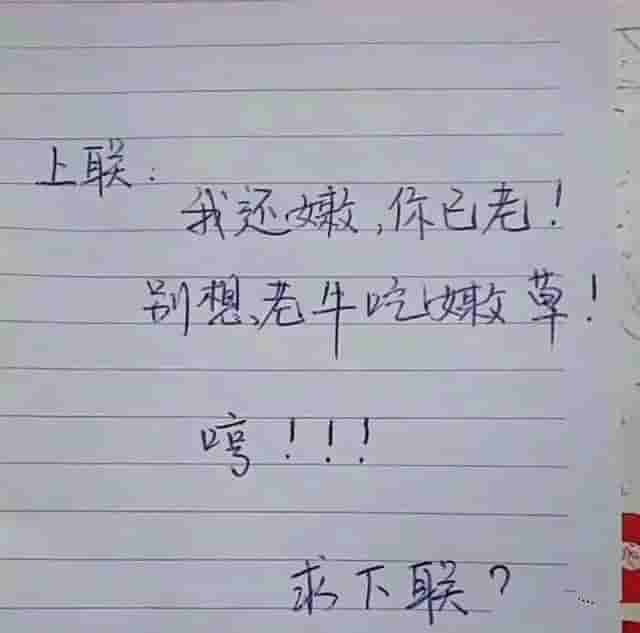 上联:
我还嫩,你已老!
别想老牛吃嫩草!
哼!!!
求下联?